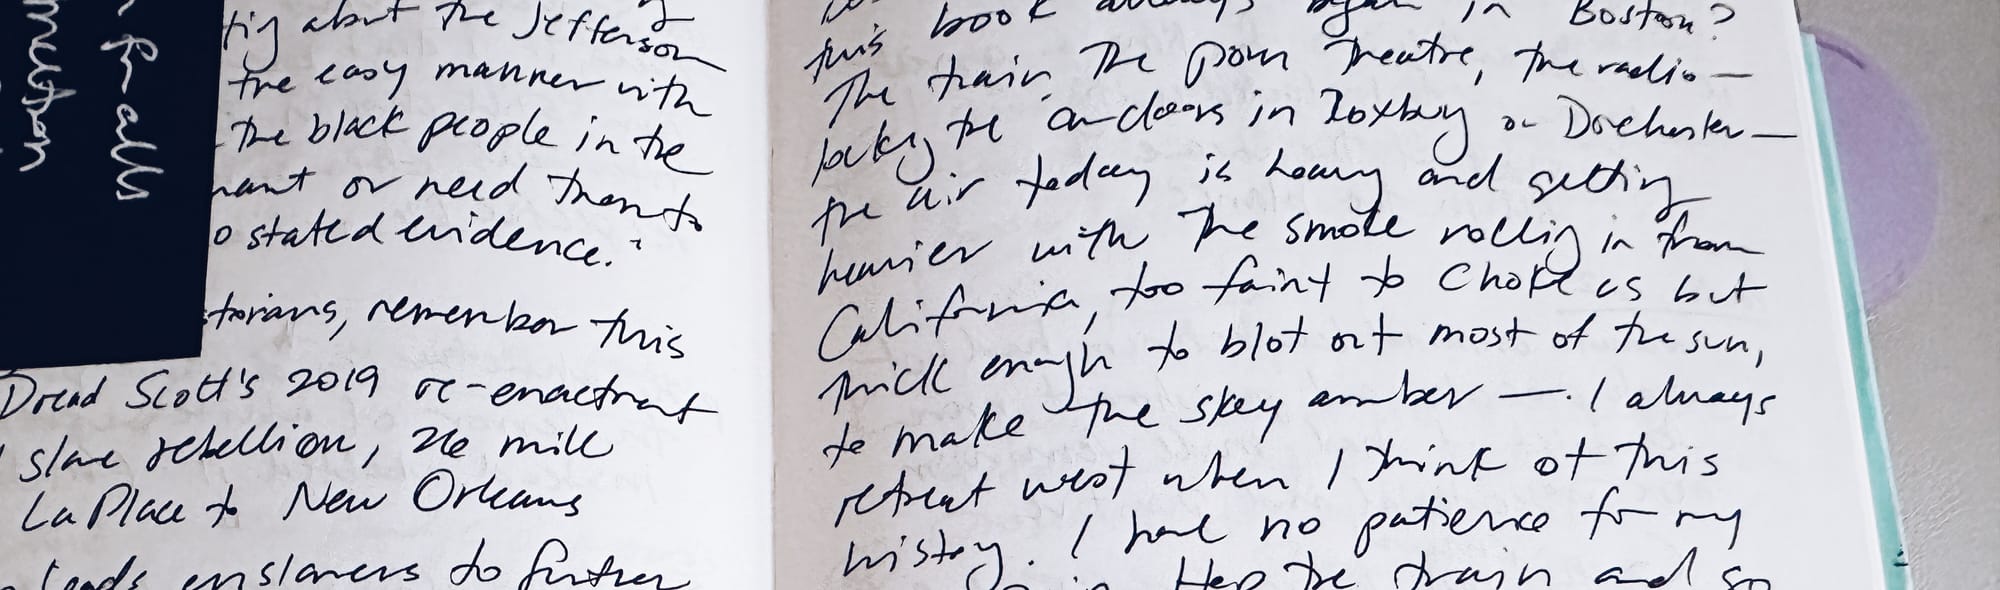 for alls
tig about the Jefferson
the easy manner with
the black people in the
want or need them to
o stated evidence."
storians, remember this
Dread Scott's 2019 re-enactment
slave rebellion, 26 mile
LaPlace to New Orleans
leads enslavers to further
this book always began in Boston?
The train, the porn theatre, the radio—
locking the car doors in Roxbury or Dorchester—
the air today is heavy and getting
heavier with the smoke rolling in from
California, too faint to choke us but
thick enough to blot out most of the sun,
to make the sky amber —. I always
retreat west when I think of this
history. I have no patience for my
the train and so